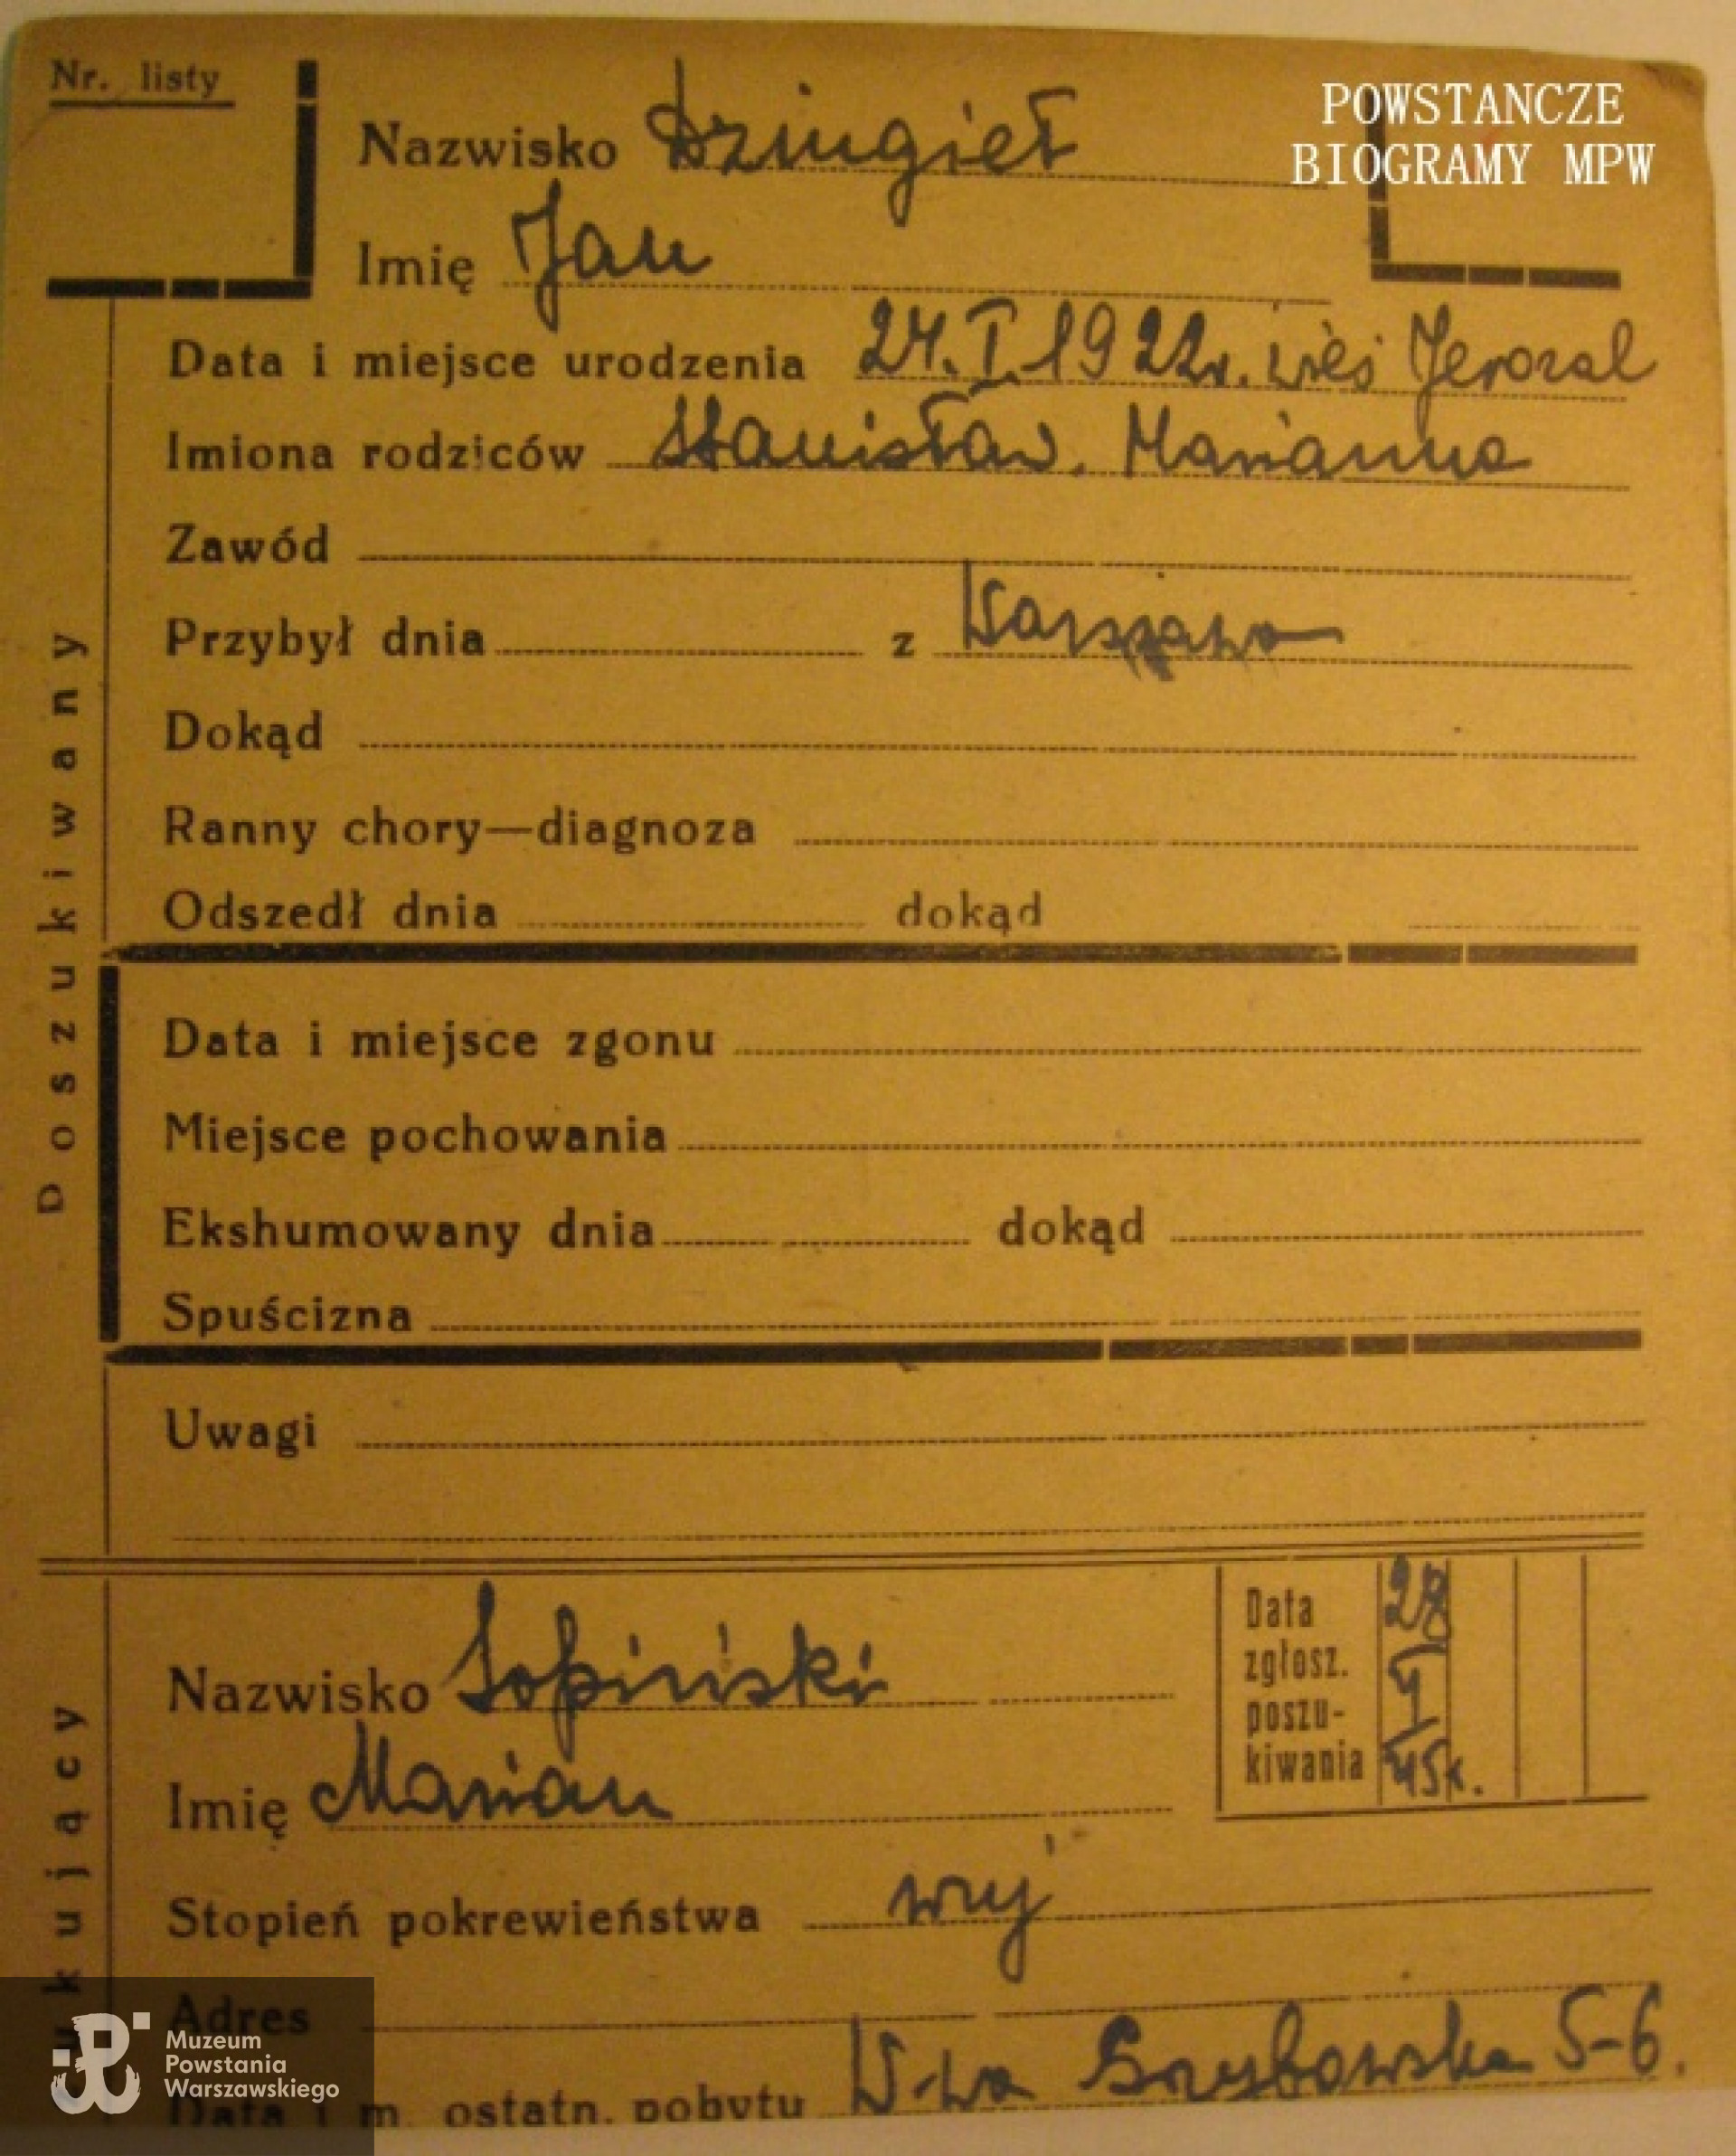 Nr. listy
POWSTANCZE
BIOGRAMY MPW
Nazwisko Dzingieł
Imię Jan
Data i miejsce urodzenia 24.I.1922r. wieś Jerozal
Imiona rodziców Stanisław, Marianna
Zawód
Przybył dnia z Warszawa
Dokąd
Ranny chory—diagnoza
Odszedł dnia dokąd
Doszukiwany
Data i miejsce zgonu
Miejsce pochowania
Ekshumowany dnia dokąd
Spuścizna
Uwagi
Nazwisko Łopiński
Imię Marian
Data zgłosz. poszu-
kiwania 28 45r.
Stopień pokrewieństwa wuj
ukujący
Adres
W-wa Grzybowska 5-6.
Data i m. ostatn. pobytu
Muzeum
Powstania
Warszawskiego